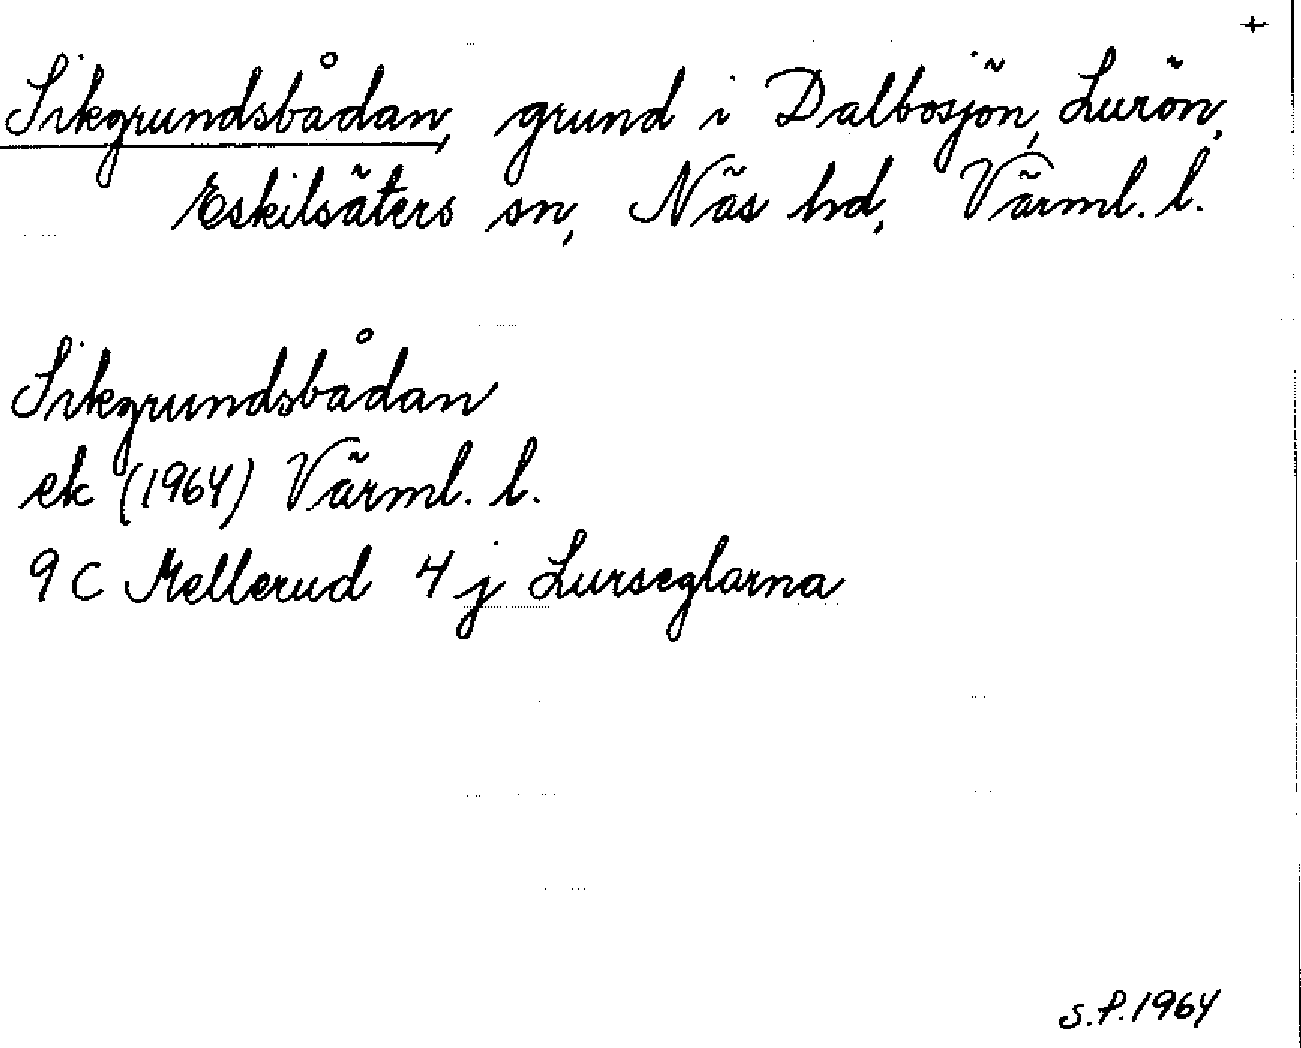 +
Sikgrundsbådan, grund i Dalbosjön, Lurön,
Eskilsäters sn, Näs hd, Värml. l.
Sikgrundsbådan
ek (1964) Värml. l.
9 C Mellerud 4 j Lurseglarna
S.P. 1964